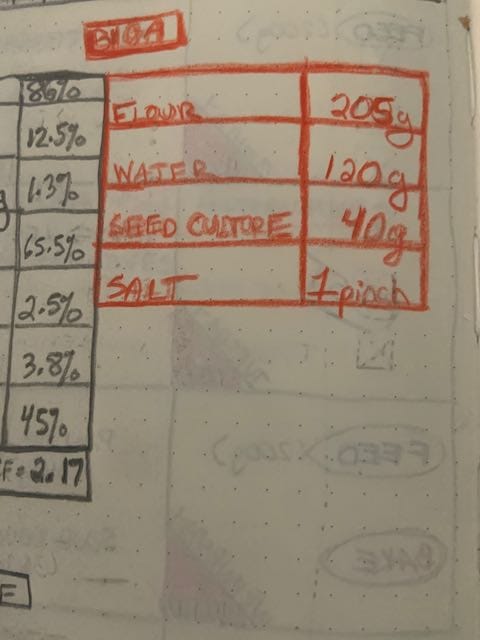 BIGA
FLOUR 205g
WATER 120g
SEED CULTURE 40g
SALT 1 pinch
86%
12.5%
1.3%
65.5%
2.5%
3.8%
45%
= 2.17
FEED
BAKE